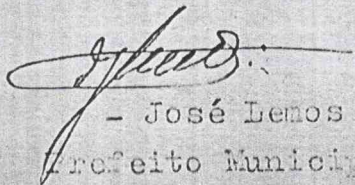 - José Lemos
Prefeito Municip